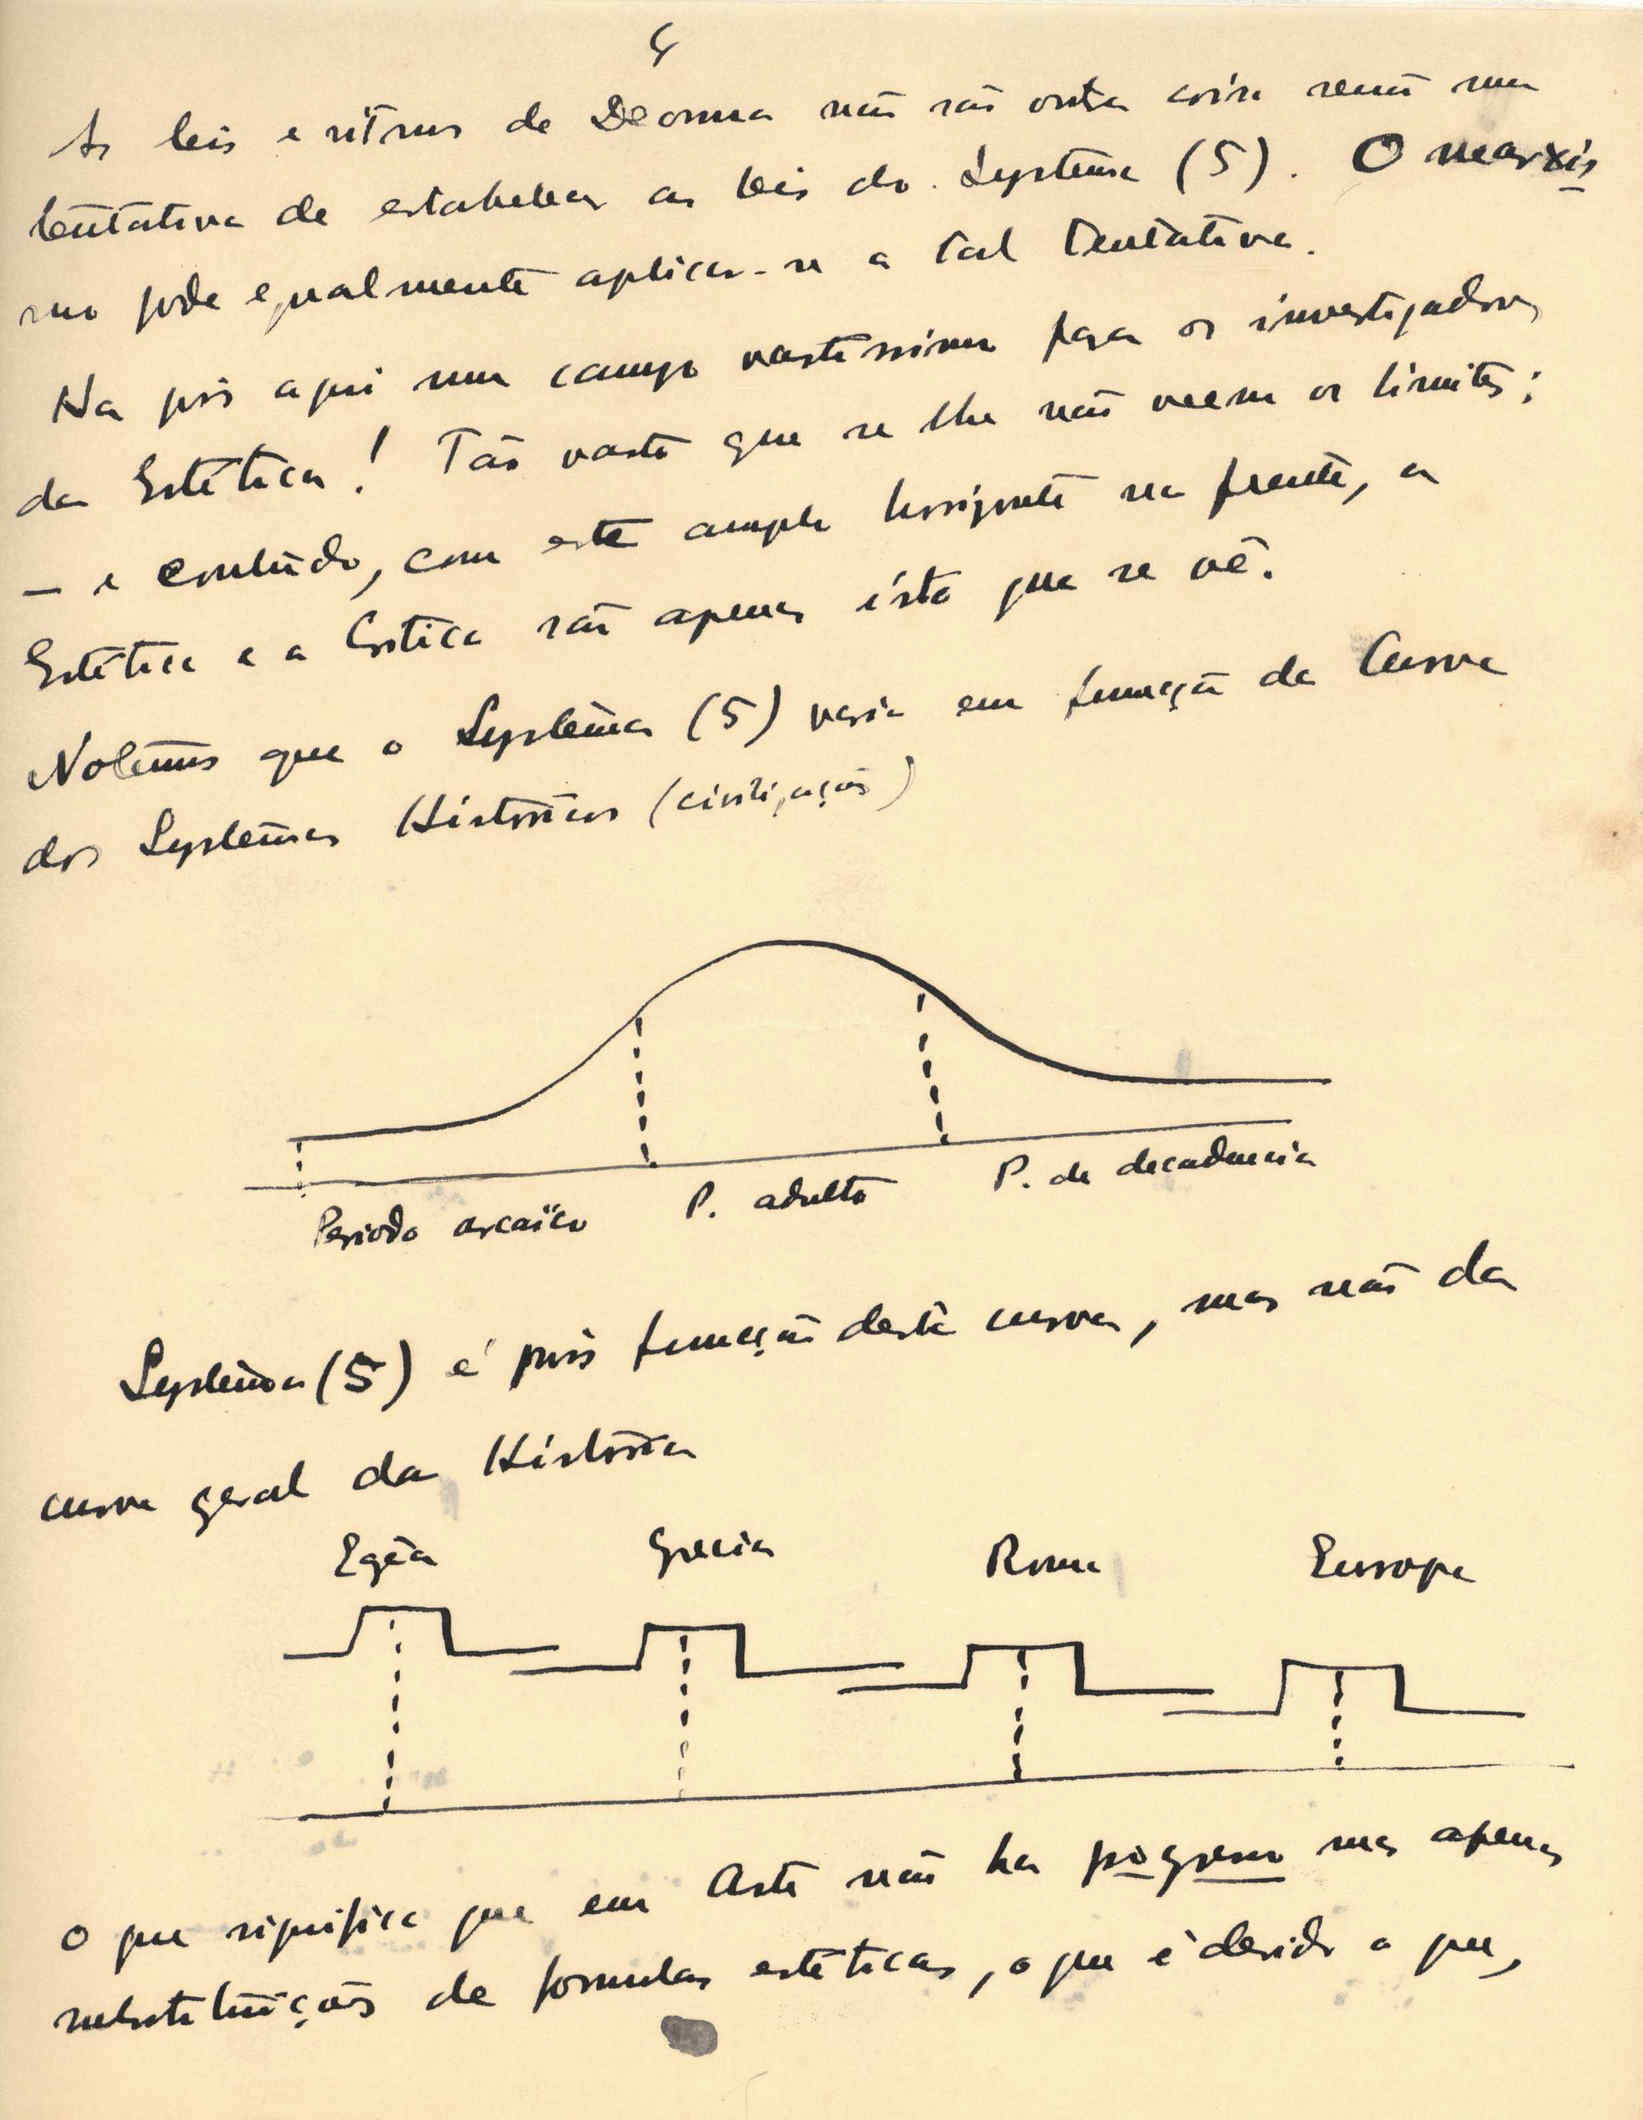 4
As leis e ritmos de Deonna não são outra coisa senão uma
tentativa de estabelecer as leis do Systema (5). O marxis
mo pode egualmente aplicar-se a tal tentativa.
Ha pois aqui um campo vastissimo para os investigadores
da Estética! Tão vasto que se lhe não veem os limites;
— e contudo, com este amplo horizonte na frente, a
Estética e a Critica são apenas isto que se vê.
Notemos que o Systema (5) varia em função da Curva
dos Systemas Históricos (civilização)
Periodo arcaïco P. adulto P. de decadencia
Systema (5) é pois função desta curva, mas não da
curva geral da História
Egêa Grecia Roma Europa
O que significa que em Arte não ha progresso mas apenas
substituição de formulas estéticas, o que é devido a que,